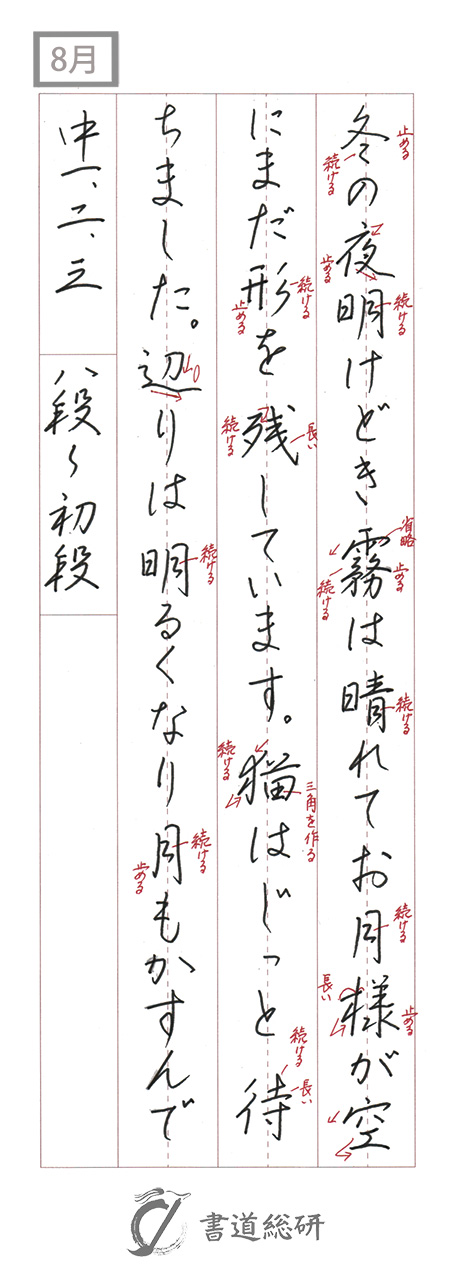 8月
冬の夜明けどき霧は晴れてお月様が空
にまだ形を残しています。猫はじっと待
ちました。辺りは明るくなり月もかすんで
中一、二、三
八段〜初段
止める
続ける
止める
続ける
省略
止める
続ける
続ける
続ける
長い
止める
続ける
止める
長い
続ける
続ける
三角を作る
続ける
長い
続ける
続ける
止める
書道総研